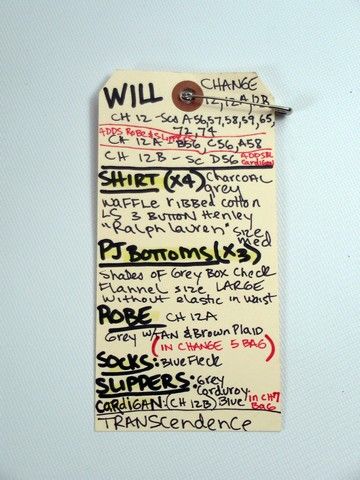 WILL CHANGE
12, 12A, 12B
CH 12 - Scs A56, 57, 58, 59, 65,
72, 74
ADDS ROBE & SLIPPERS
CH 12A - B56, C56, A58
CH 12B - Sc D56 ADDS BL Cardigan
SHIRT (x4) Charcoal grey
Waffle ribbed cotton
LS 3 Button Henley
"Ralph Lauren" size med
PJ BOTTOMS (x3)
Shades of Grey Box Check
Flannel size LARGE
Without elastic in waist
ROBE CH 12A
Grey w/TAN & Brown Plaid
(IN CHANGE 5 BAG)
SOCKS: Blue Fleck
SLIPPERS: Grey Corduroy
CARDIGAN: (CH 12B) Blue in CH7 Bag
TRANSCENDENCE